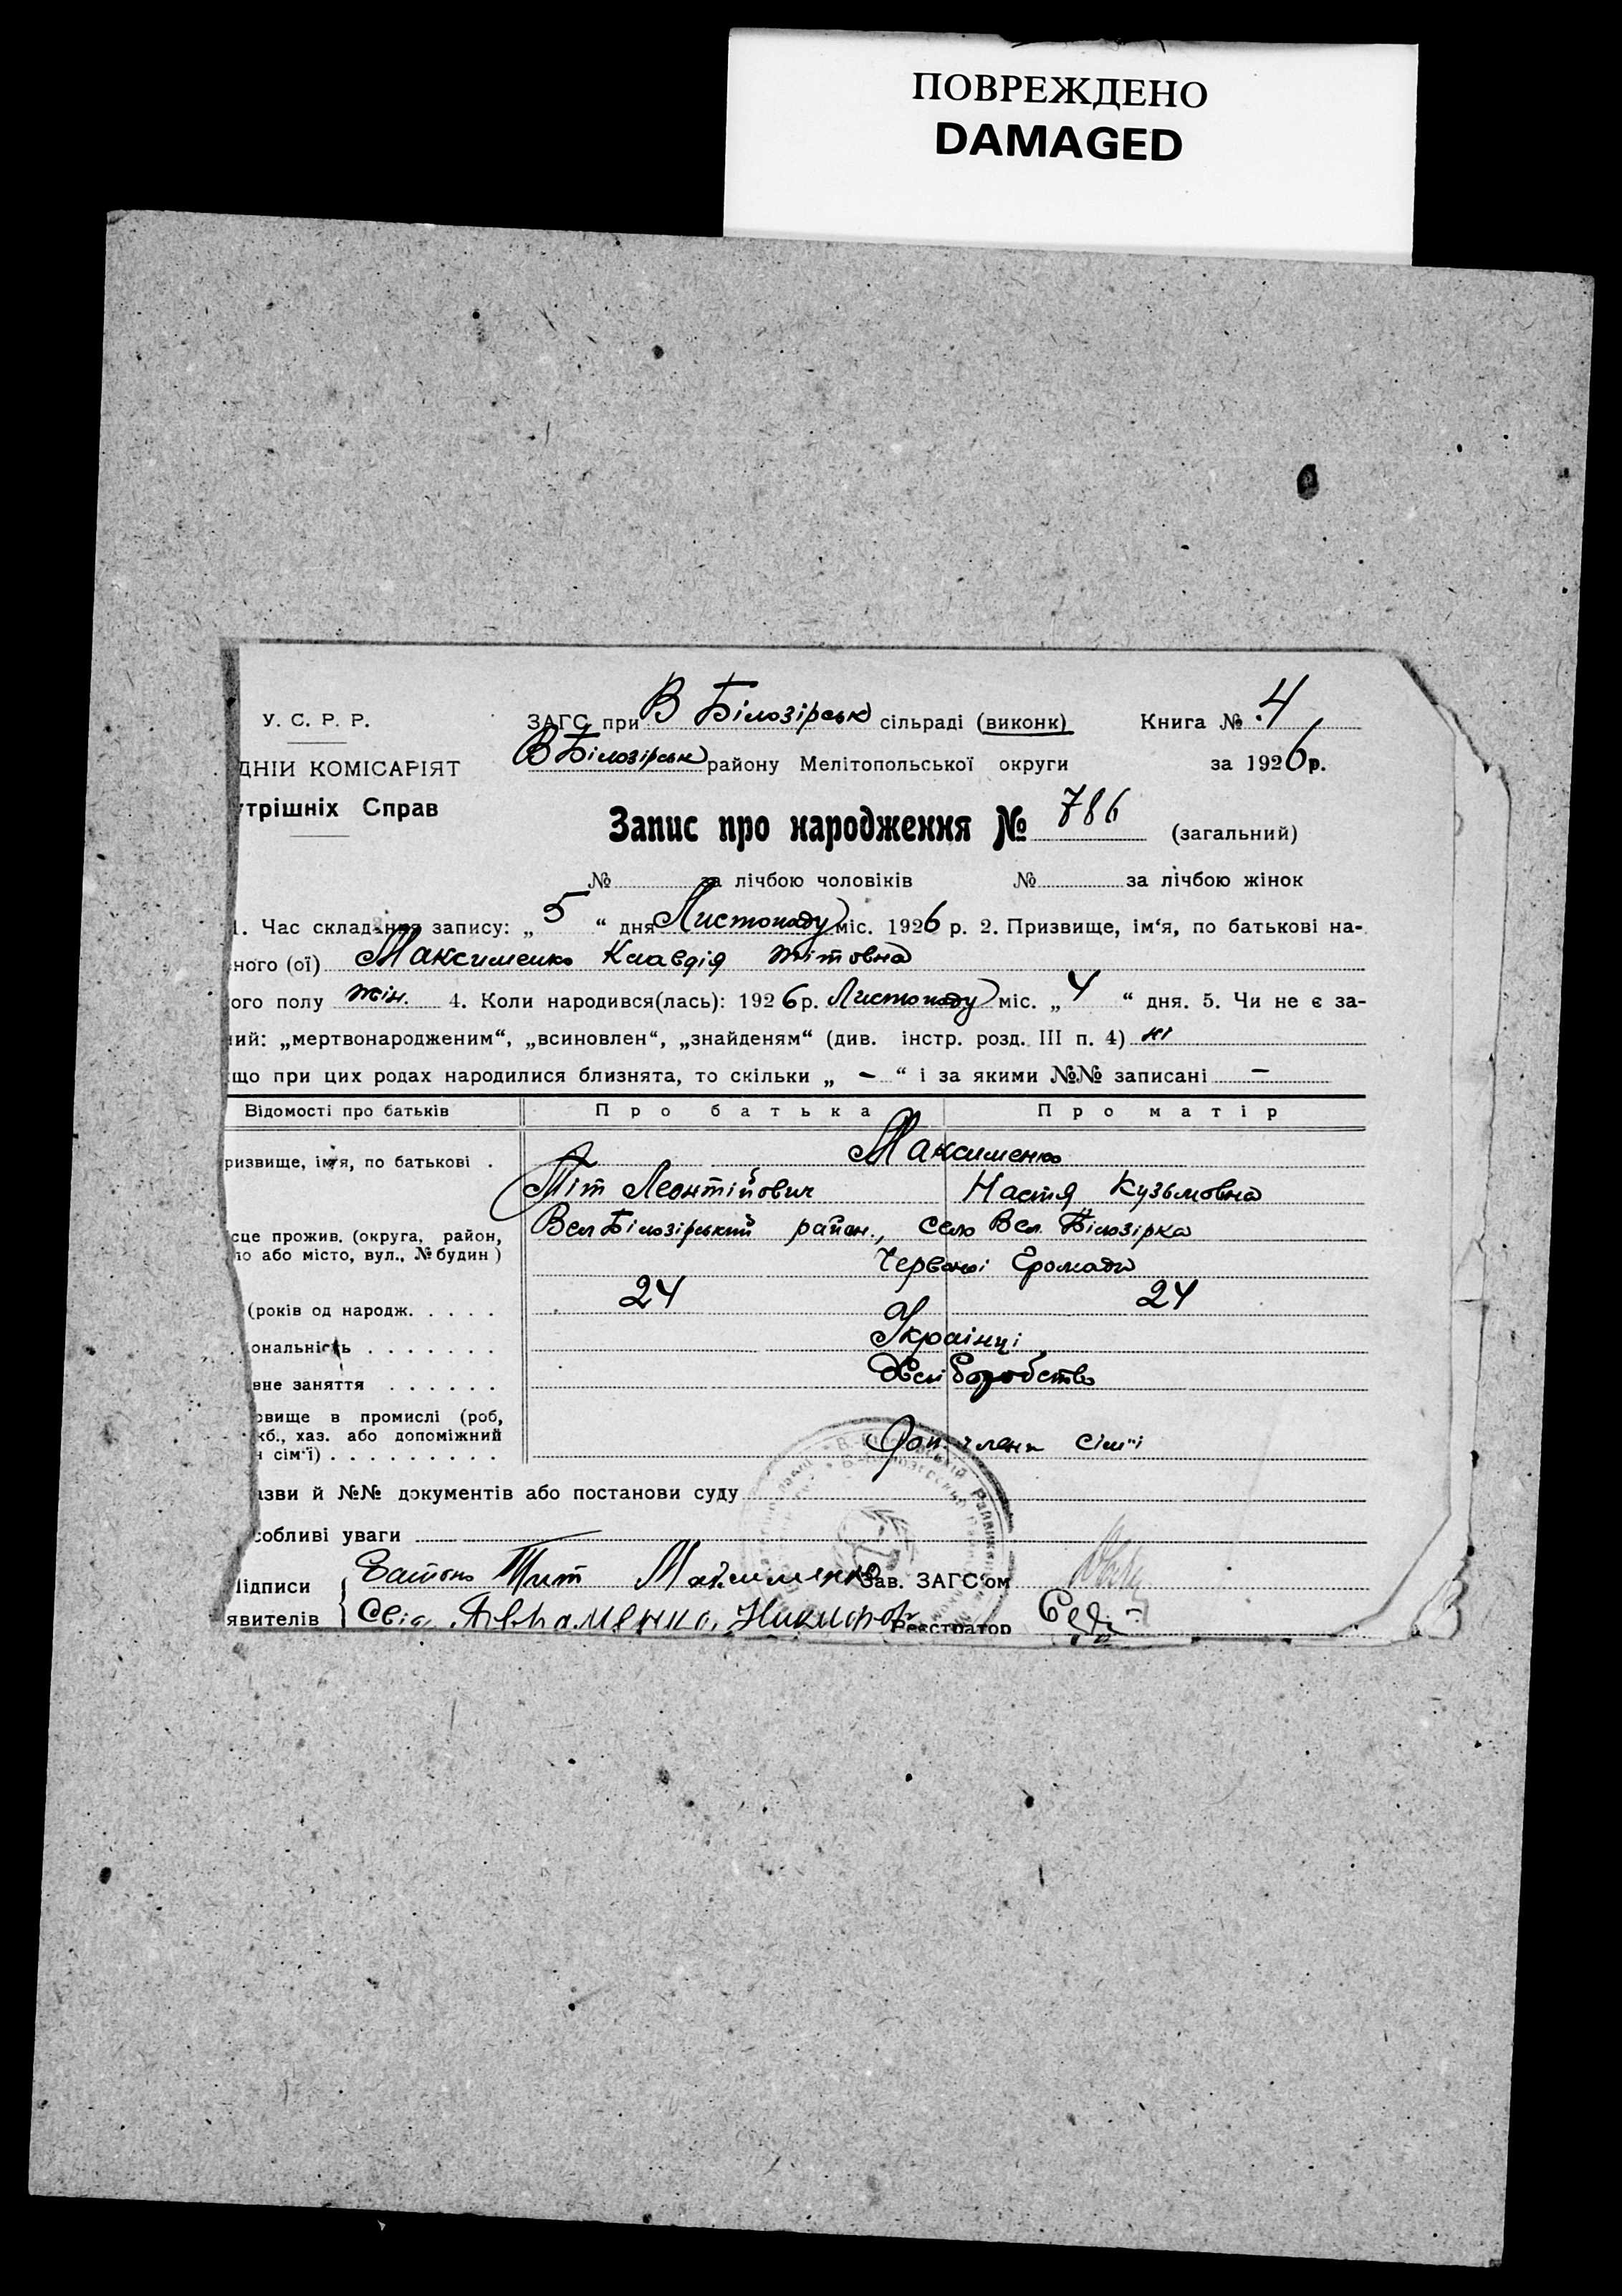 ПОВРЕЖДЕНО
DAMAGED
У. С. Р. Р.
ЗАГС при В Білозірськ сільраді (виконк)
Книга № 4
ДНІЙ КОМІСАРІЯТ
В Білозірськ району Мелітопольської округи
за 1926 р.
утрішніх Справ
Запис про народження № 786 (загальний)
№ за лічбою чоловіків № за лічбою жінок
1. Час складання запису: „ 5 “ дня Листопаду міс. 1926 р. 2. Призвище, ім‘я, по батькові на-
ного (ої) Максименко Клавдія Тітовна
ого полу жін. 4. Коли народився(лась): 1926 р. Листопаду міс. „ 4 “ дня. 5. Чи не є за-
ий: „мертвонародженим“, „всиновлен“, „знайденям“ (див. інстр. розд. III п. 4) ні
що при цих родах народилися близнята, то скільки „ – “ і за якими №№ записані –
Відомості про батьків Про батька Про матір
ризвище, ім‘я, по батькові .
Максименко
Тіт Леонтійович Настя Кузьмовна
сце прожив. (округа, район,
ло або місто, вул., № будин )
Вел Білозірський район., село Вел. Білозірка
Червоної Громади
(років од народж. . . . . 24 24
ональність . . . . . . . Українці
вне заняття . . . . . . Хліборобство
овище в промислі (роб,
кб., хаз. або допоміжний
н сім‘ї) . . . . . . . . . Доп. члени сім'ї
азви й №№ документів або постанови суду
собливі уваги
Підписи
явителів
Батько Тит Максименко
Зав. ЗАГС‘ом
Свід. Авраменко Никифор
Реєстратор